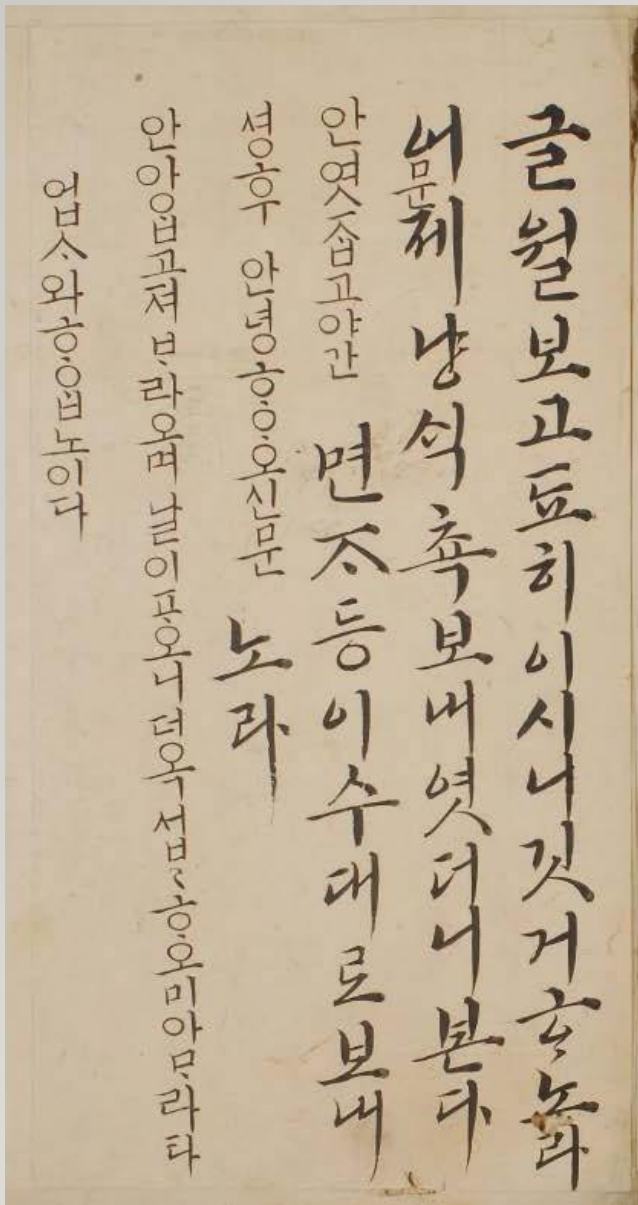 글월보고됴히이시니깃거ᄒᆞ노라
어제냥식쵹보내엿더니본다
문
안엿ᄌᆞᆸ고야간
면ᄌᆞ등이수대로보내
셩후 안녕ᄒᆞᄋᆞ오신문
노라
안아ᄋᆞᆸ고져ᄇᆞ라오며 날이ᄑᆞ오니더옥섭〻ᄒᆞ오미아ᄆᆞ라타
업ᄉᆞ와ᄒᆞᄋᆞᆸ노이다